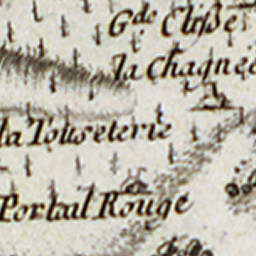 G.de Clisse
la Chagnée
la Tourelerie
Portail Rouge